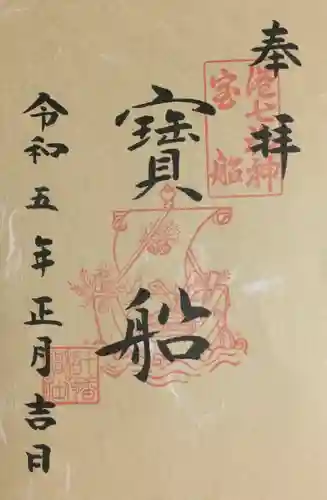 奉拝
港七福神
宝船
寶船
令和五年正月吉日